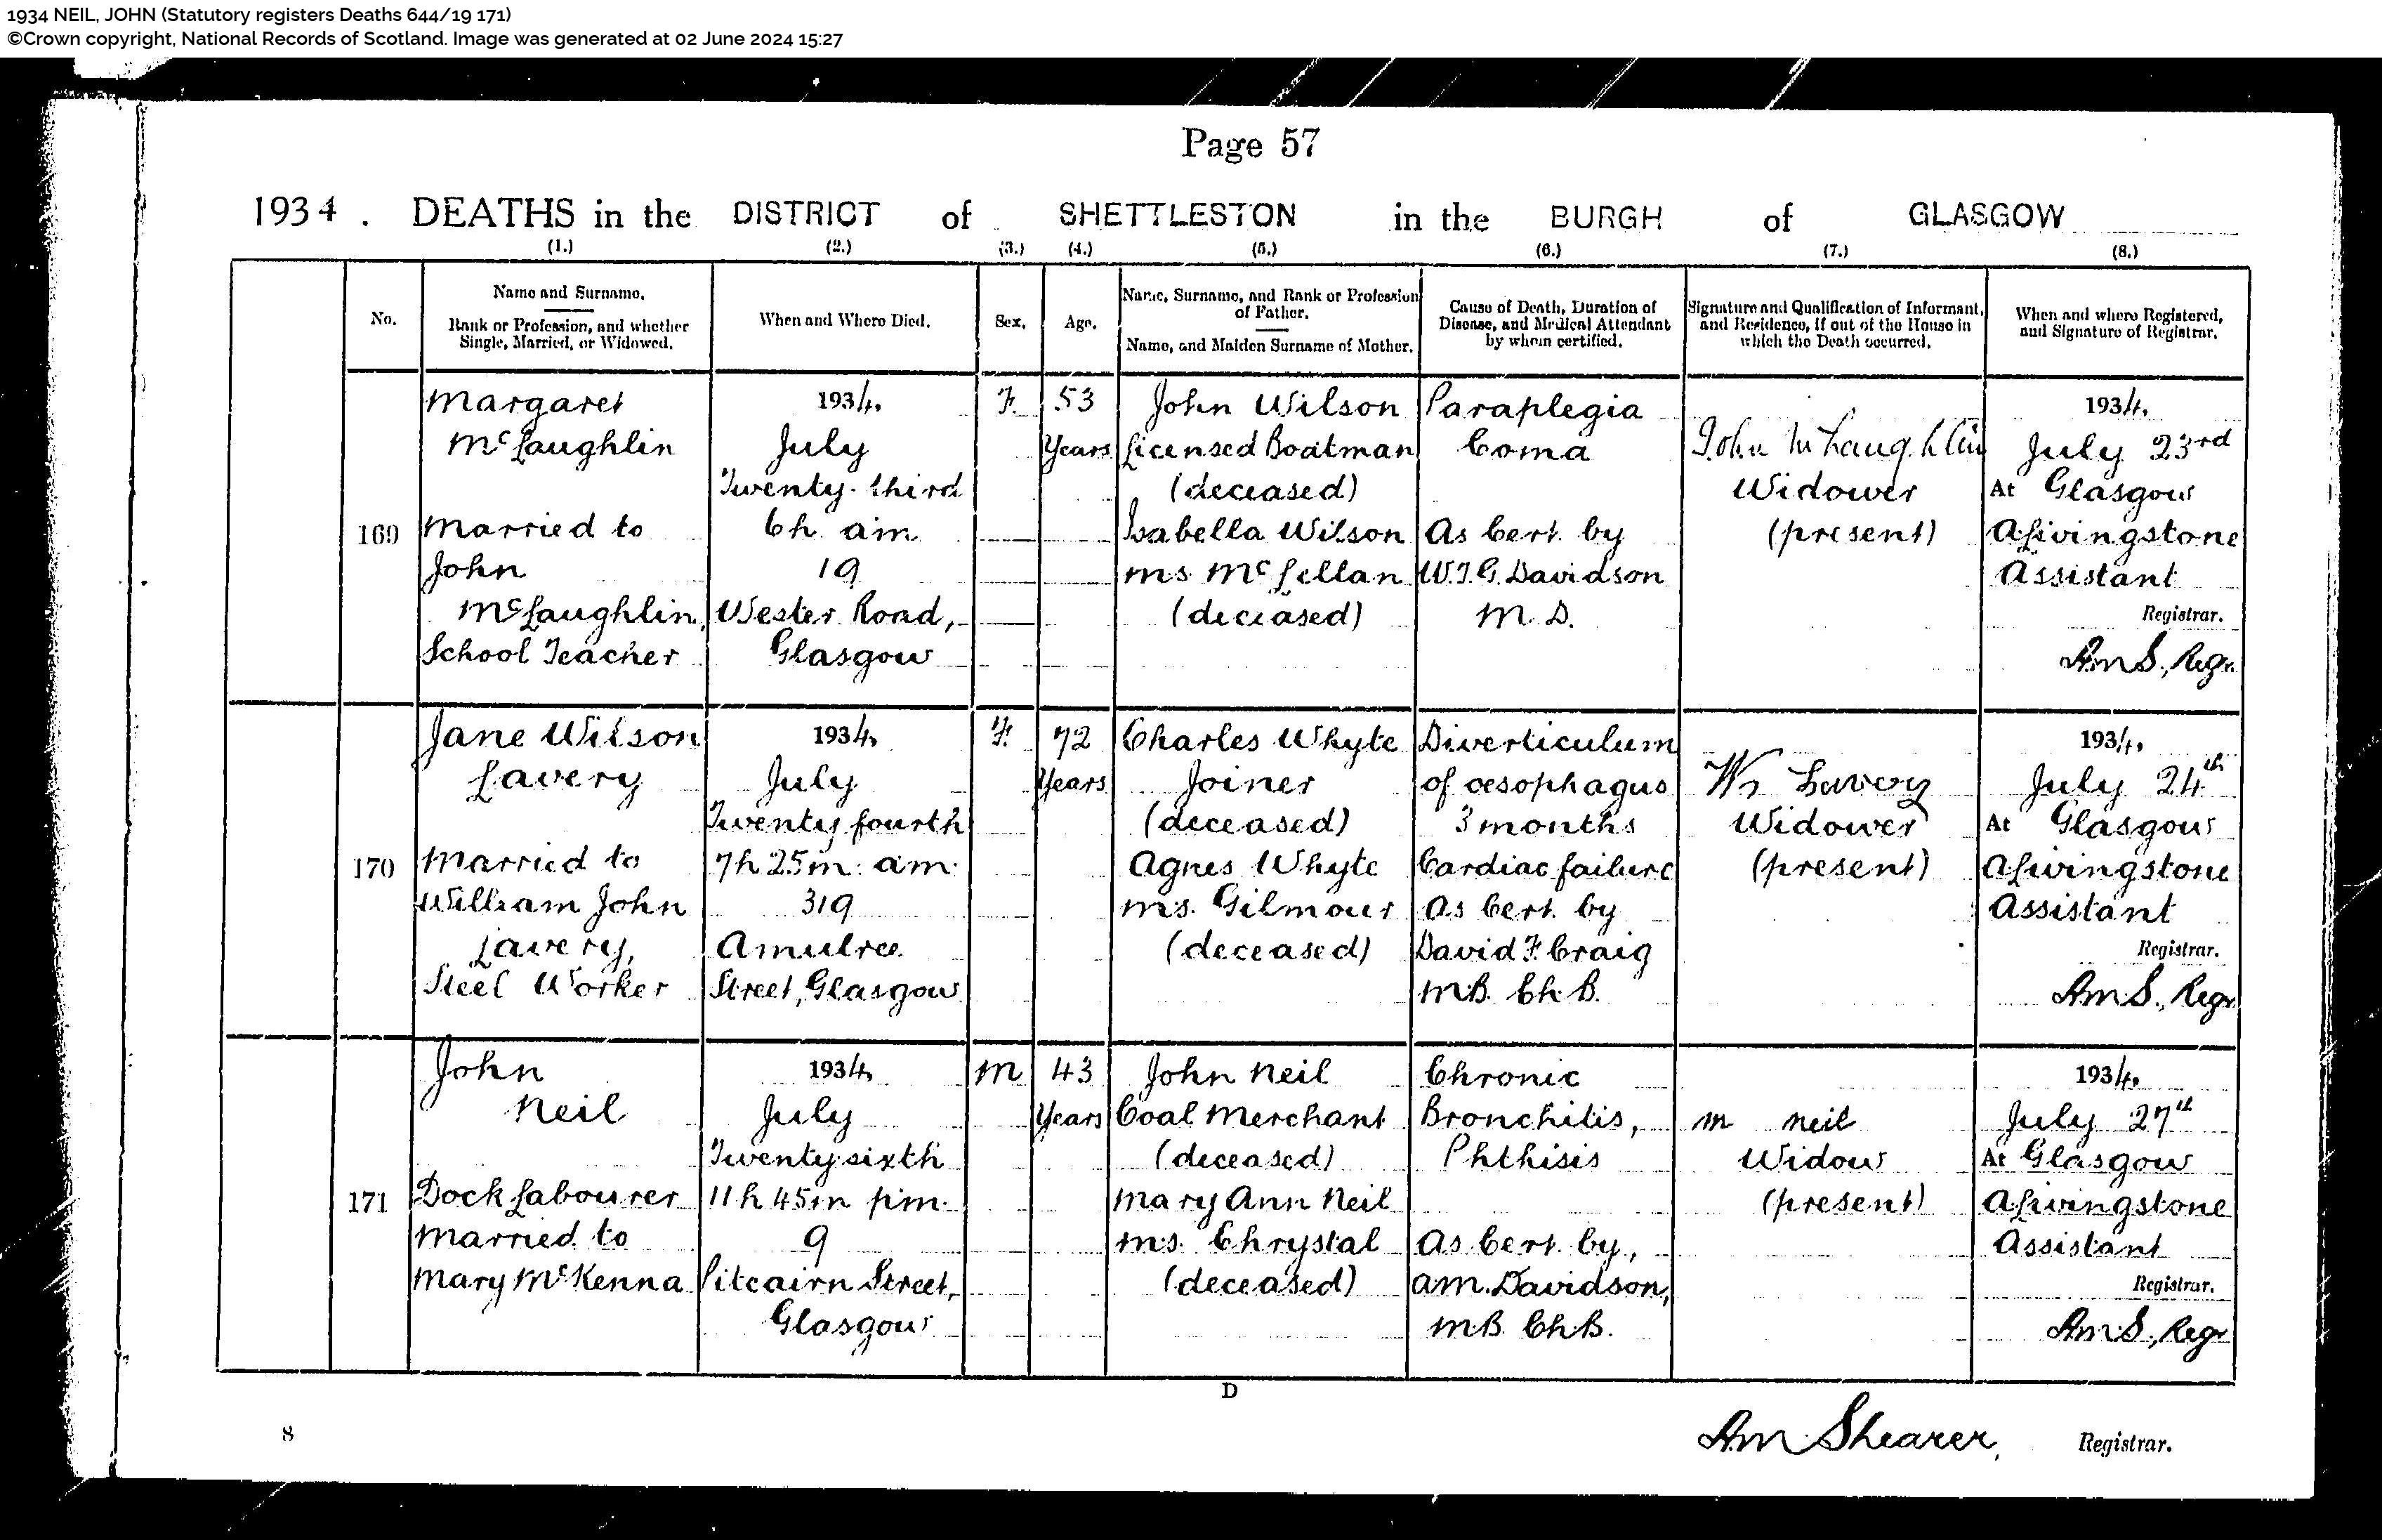 1934 NEIL, JOHN (Statutory registers Deaths 644/19 171)
©Crown copyright, National Records of Scotland. Image was generated at 02 June 2024 15:27
Page 57
1934. DEATHS in the DISTRICT of SHETTLESTON in the BURGH of GLASGOW
(1.) (2.) (3.) (4.) (5.) (6.) (7.) (8.)
No.
Name and Surname.
Rank or Profession, and whether
Single, Married, or Widowed.
When and Where Died.
Sex.
Age.
Name, Surname, and Rank or Profession
of Father.
Name, and Maiden Surname of Mother.
Cause of Death, Duration of
Disease, and Medical Attendant
by whom certified.
Signature and Qualification of Informant,
and Residence, if out of the House in
which the Death occurred.
When and where Registered,
and Signature of Registrar.
169
Margaret
McLaughlin
Married to
John
McLaughlin,
School Teacher
1934.
July
Twenty third
6h am
19
Wester Road,
Glasgow
F.
53
Years
John Wilson
Licensed Boatman
(deceased)
Isabella Wilson
ms McLellan
(deceased)
Paraplegia
Coma
As Cert. by
W.J.G. Davidson
M.D.
John McLaughlin
Widower
(present)
1934.
July 23rd
At Glasgow
A Livingstone
Assistant
Registrar.
AmS., Regr.
170
Jane Wilson
Lavery
Married to
William John
Lavery,
Steel Worker
1934.
July
Twenty fourth
7h 25m. am.
319
Amulree
Street, Glasgow
F.
72
Years
Charles Whyte
Joiner
(deceased)
Agnes Whyte
ms. Gilmour
(deceased)
Diverticulum
of oesophagus
3 months
Cardiac failure
As Cert. by
David F. Craig
M.B. Ch.B.
Wm Lavery
Widower
(present)
1934.
July 24th
At Glasgow
A Livingstone
Assistant
Registrar.
AmS., Regr
171
John
Neil
Dock Labourer
Married to
Mary McKenna
1934.
July
Twenty sixth
11h 45m pm.
9
Pitcairn Street,
Glasgow
M
43
Years
John Neil
Coal Merchant
(deceased)
Mary Ann Neil
ms. Chrystal
(deceased)
Chronic
Bronchitis,
Phthisis
As Cert. by,
A.M. Davidson,
M.B. Ch.B.
M Neil
Widow
(present)
1934.
July 27th
At Glasgow
A Livingstone
Assistant
Registrar.
AmS., Regr
D
8
Am Shearer,
Registrar.